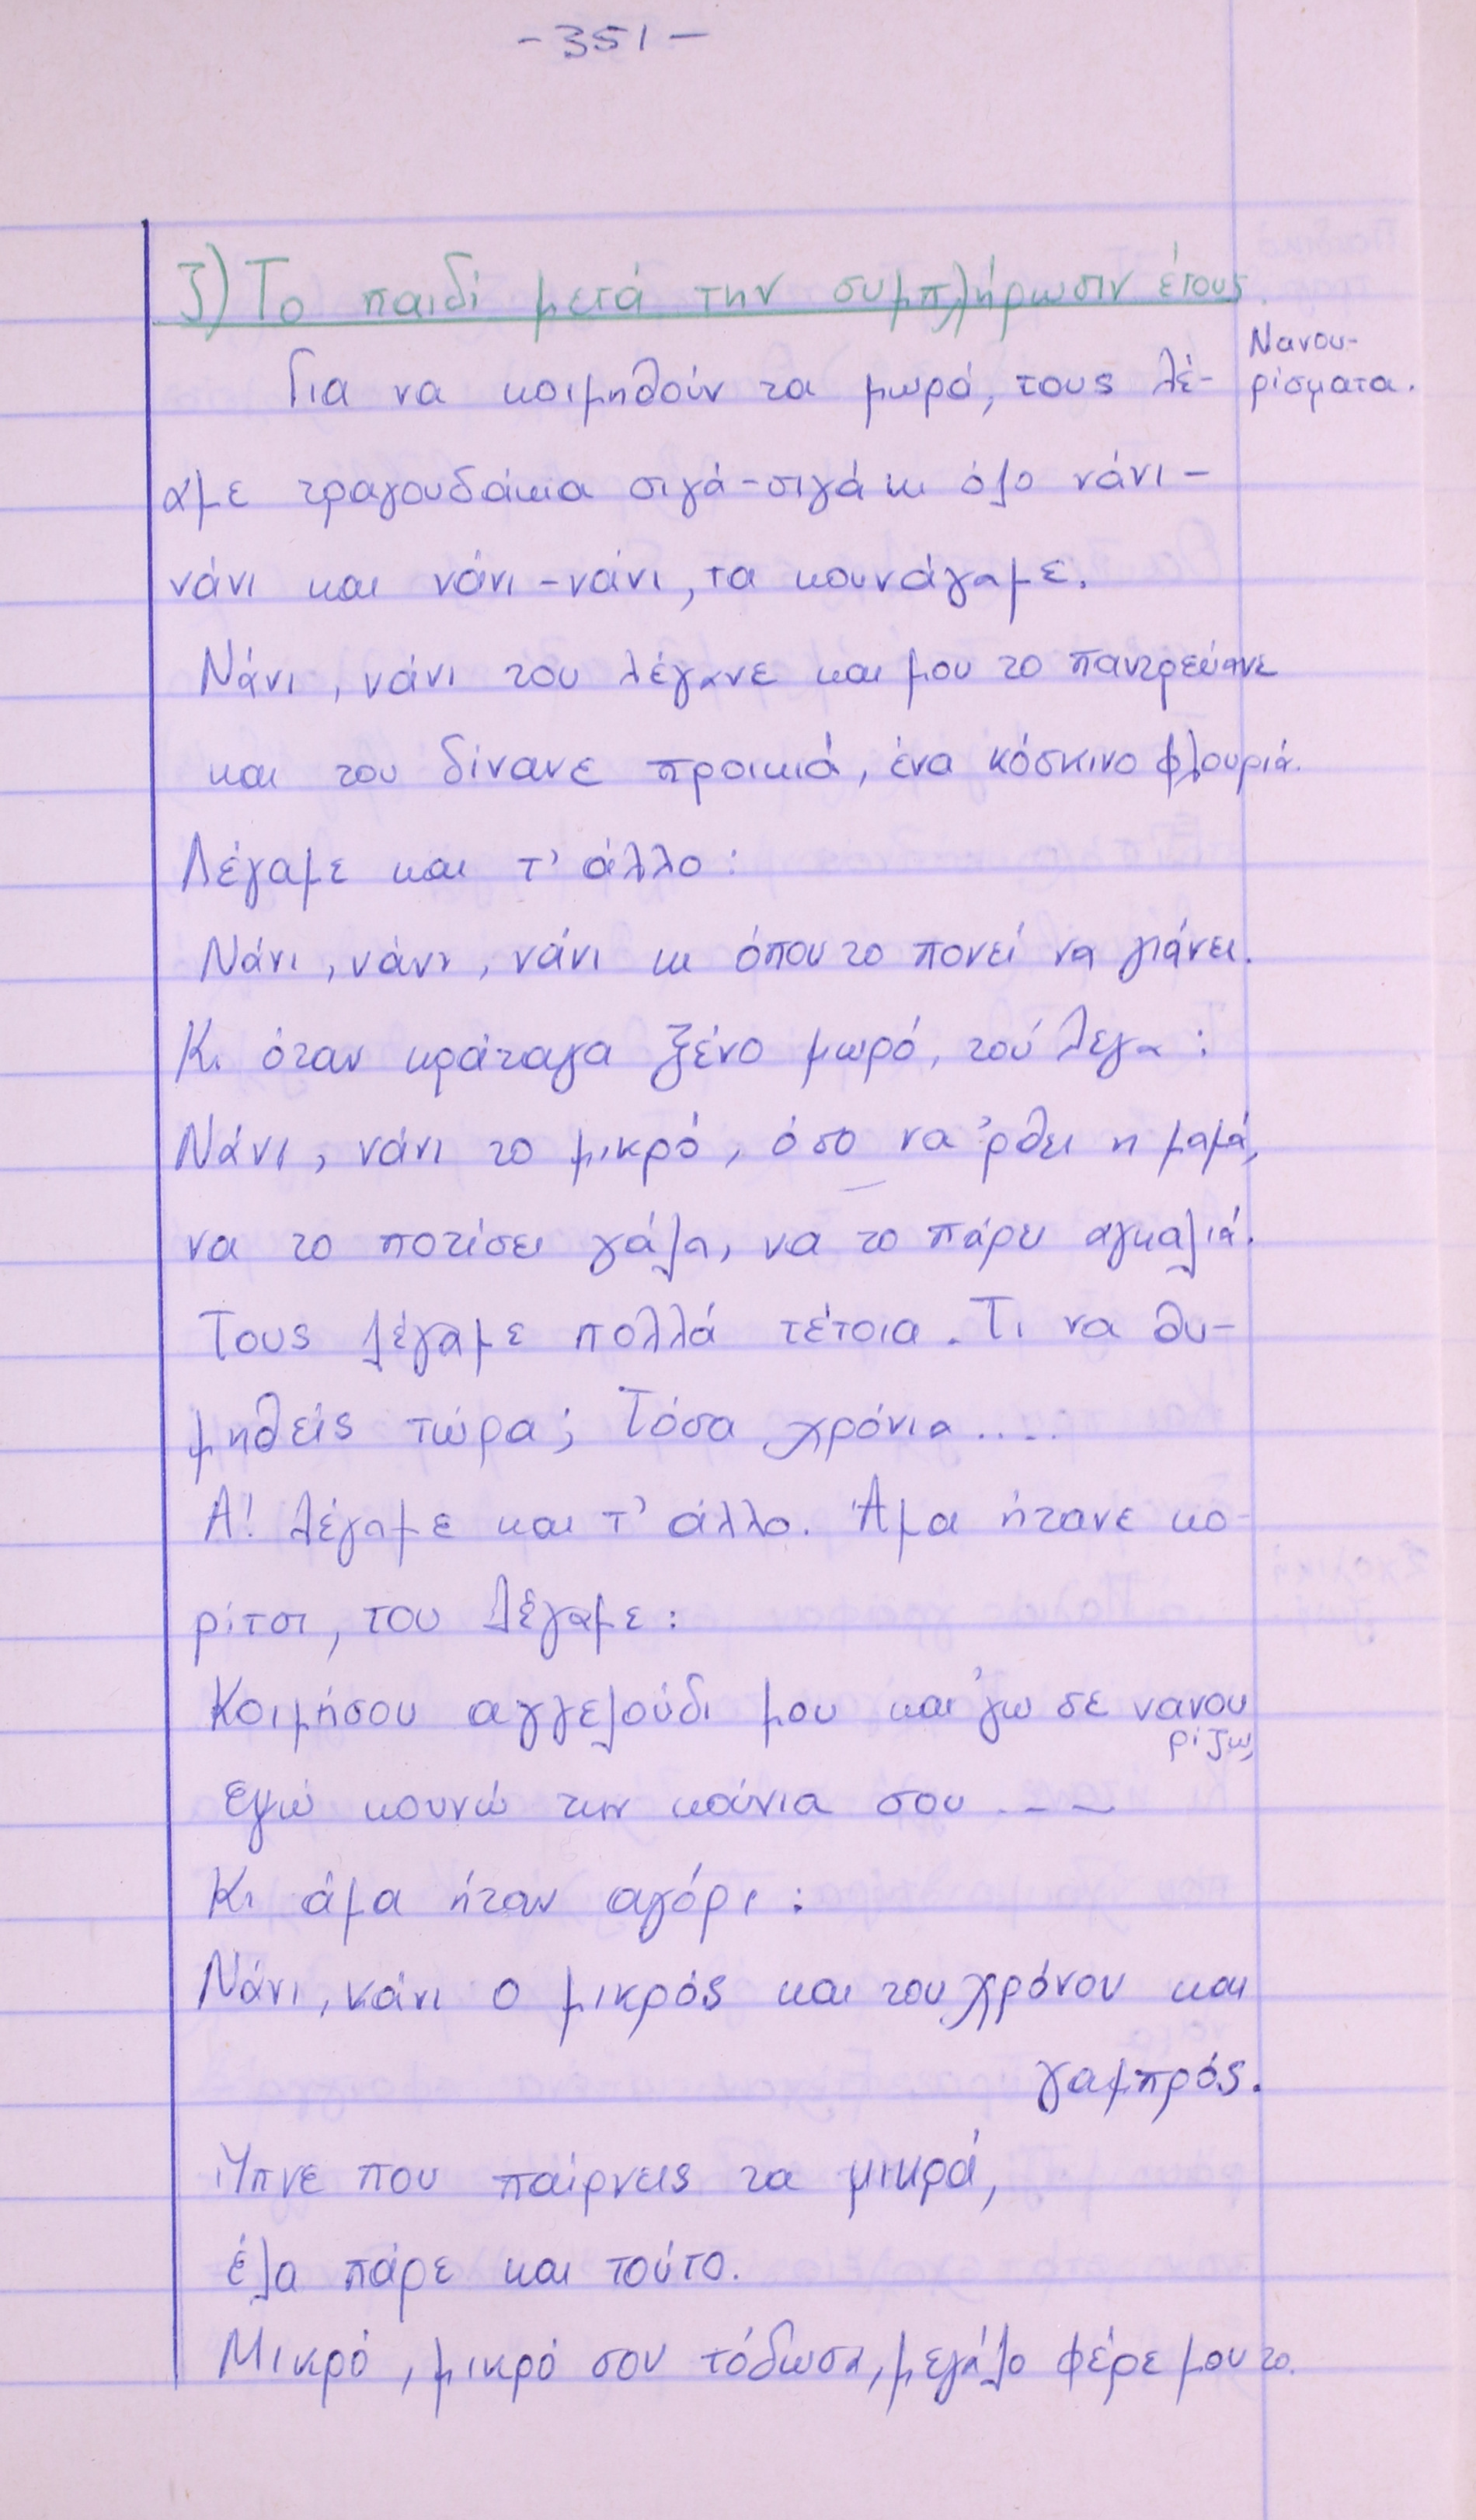 -351-
ζ) Το παιδί μετά την συμπλήρωσιν έτους.
Νανου-
ρίσματα.
Για να κοιμηθούν τα μωρά, τους λέ-
αμε τραγουδάκια σιγά-σιγά κι όλο νάνι-
νάνι και νάνι-νάνι, τα κουνάγαμε.
Νάνι, νάνι του λέγανε και μου το παντρεύανε
και του δίνανε προικιά, ένα κόσκινο φλουριά.
Λέγαμε και τ' άλλο:
Νάνι, νάνι, νάνι κι όπου το πονεί να γιάνει.
Κι όταν κράταγα ξένο μωρό, τού λεγα:
Νάνι, νάνι το μικρό, όσο να 'ρθει η μαμά,
να το ποτίσει γάλα, να το πάρει αγκαλιά.
Τους λέγαμε πολλά τέτοια. Τι να θυ-
μηθείς τώρα; Τόσα χρόνια....
Α! λέγαμε και τ' άλλο. Άμα ήτανε κο-
ρίτσι, του λέγαμε:
Κοιμήσου αγγελούδι μου και 'γω σε νανου
ρίζω,
εγώ κουνώ την κούνια σου ---
Κι άμα ήταν αγόρι:
Νάνι, νάνι ο μικρός και του χρόνου και
γαμπρός.
Ύπνε που παίρνεις τα μικρά,
έλα πάρε και τούτο.
Μικρό, μικρό σου τόδωσα, μεγάλο φέρε μου το.